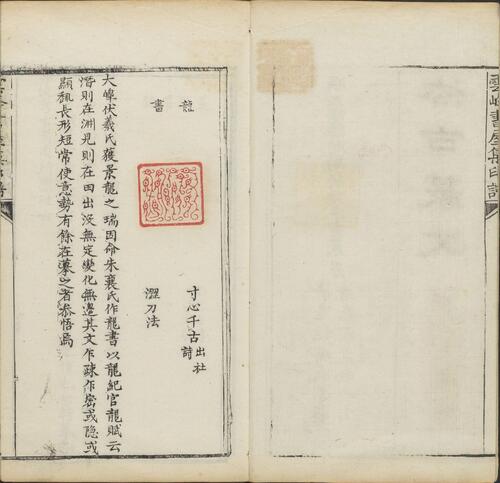 雲峰書屋集印譜
龍書
寸心千古 出杜詩
澀刀法
大皞伏羲氏獲景龍之瑞因命朱襄氏作龍書以龍紀官龍賦云
潛則在淵見則在田出没無定變化無邉其文乍疎作密或隱或
顯秖長形短常使意勢有餘在摹之者恭悟焉